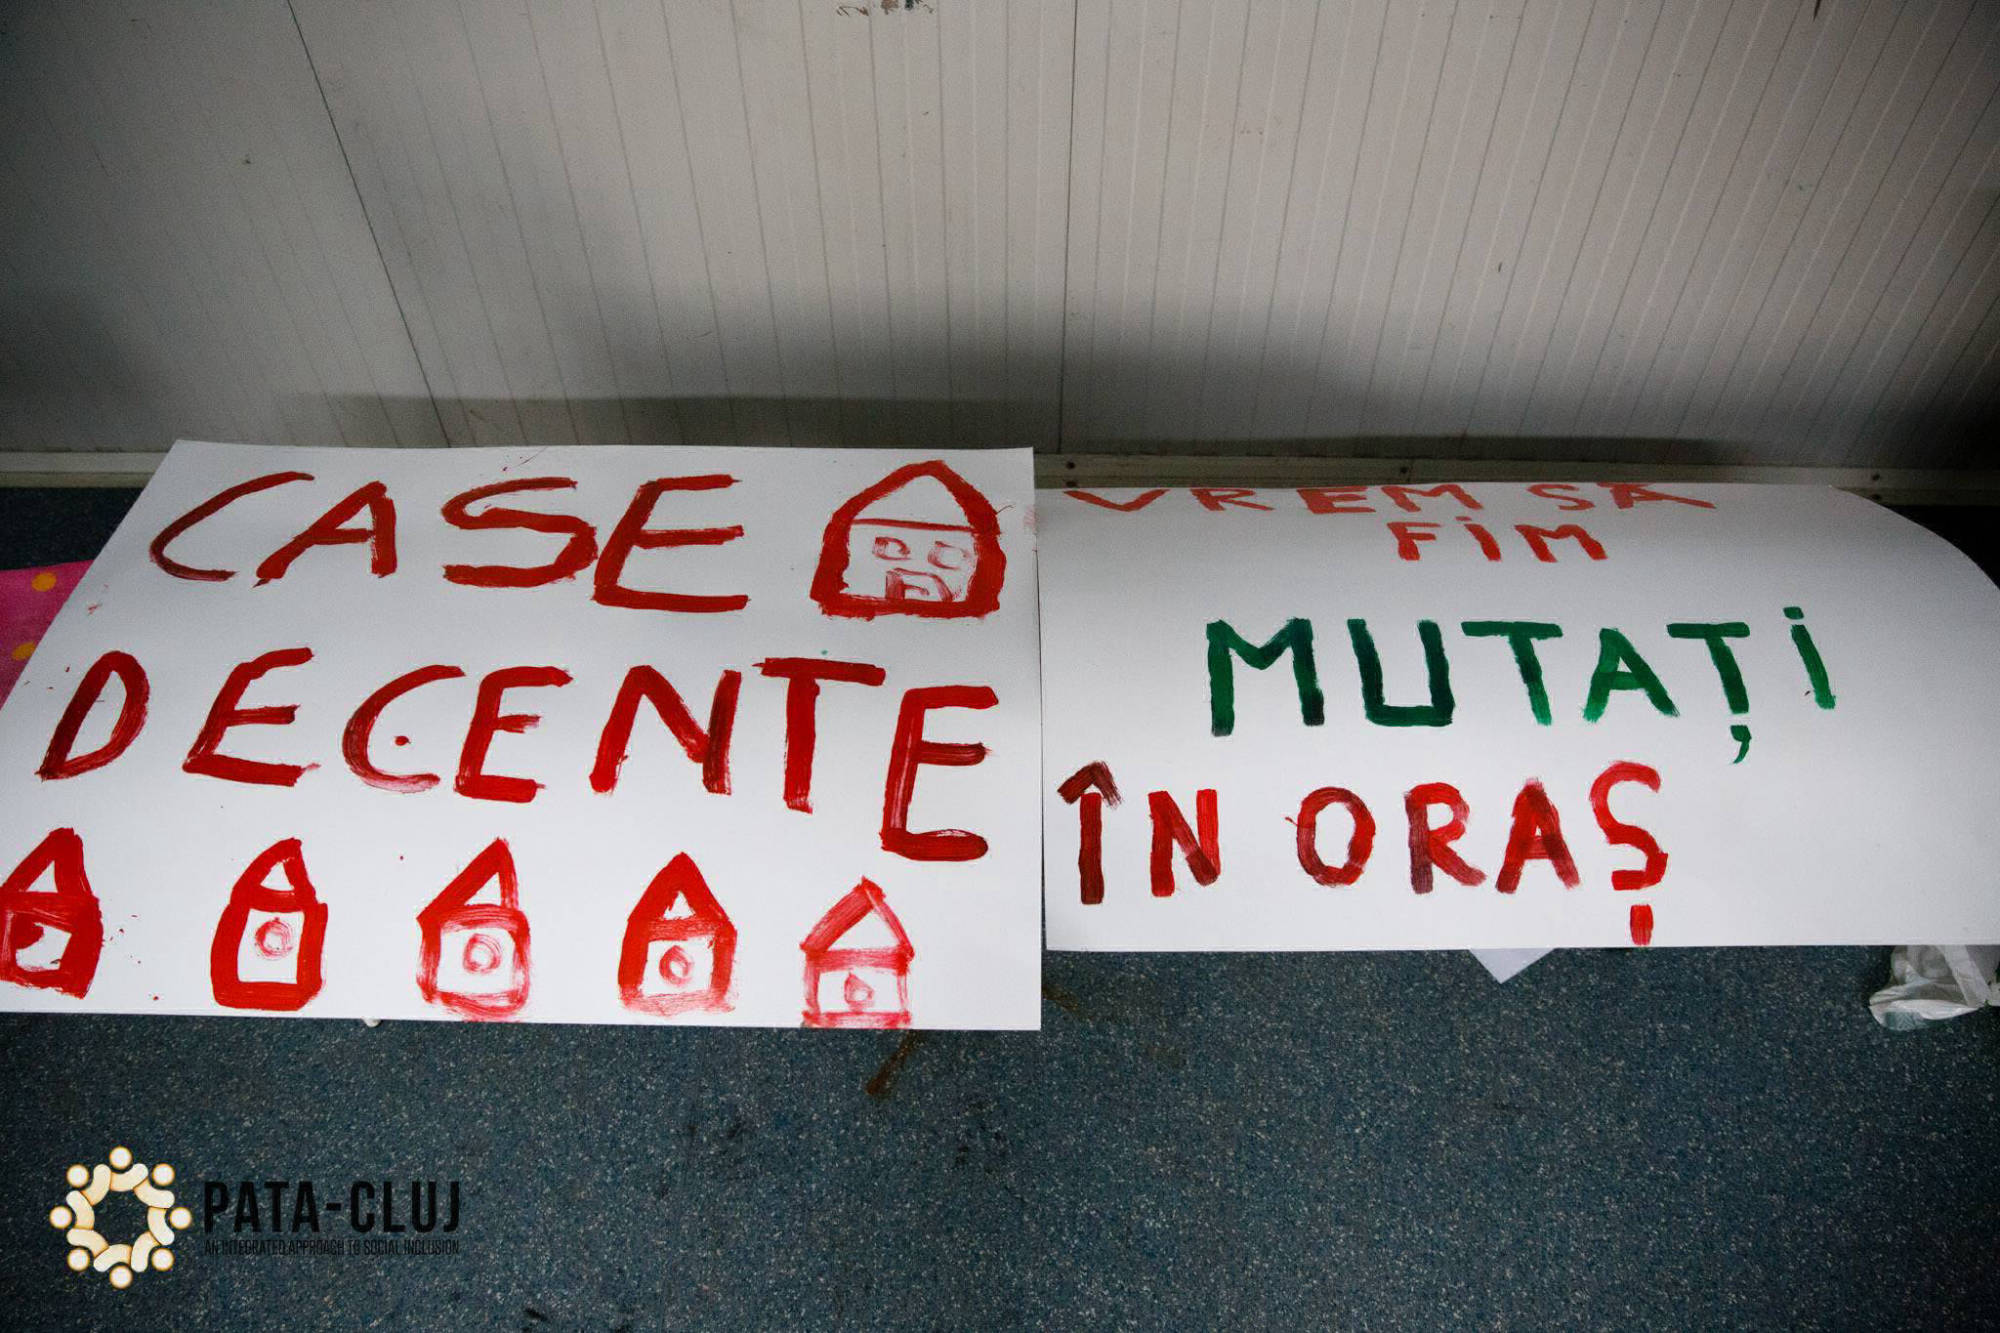 CASE
DECENTE
VREM SA
FIM
MUTAȚI
ÎN ORAȘ
PATA-CLUJ
AN INTEGRATED APPROACH TO SOCIAL INCLUSION